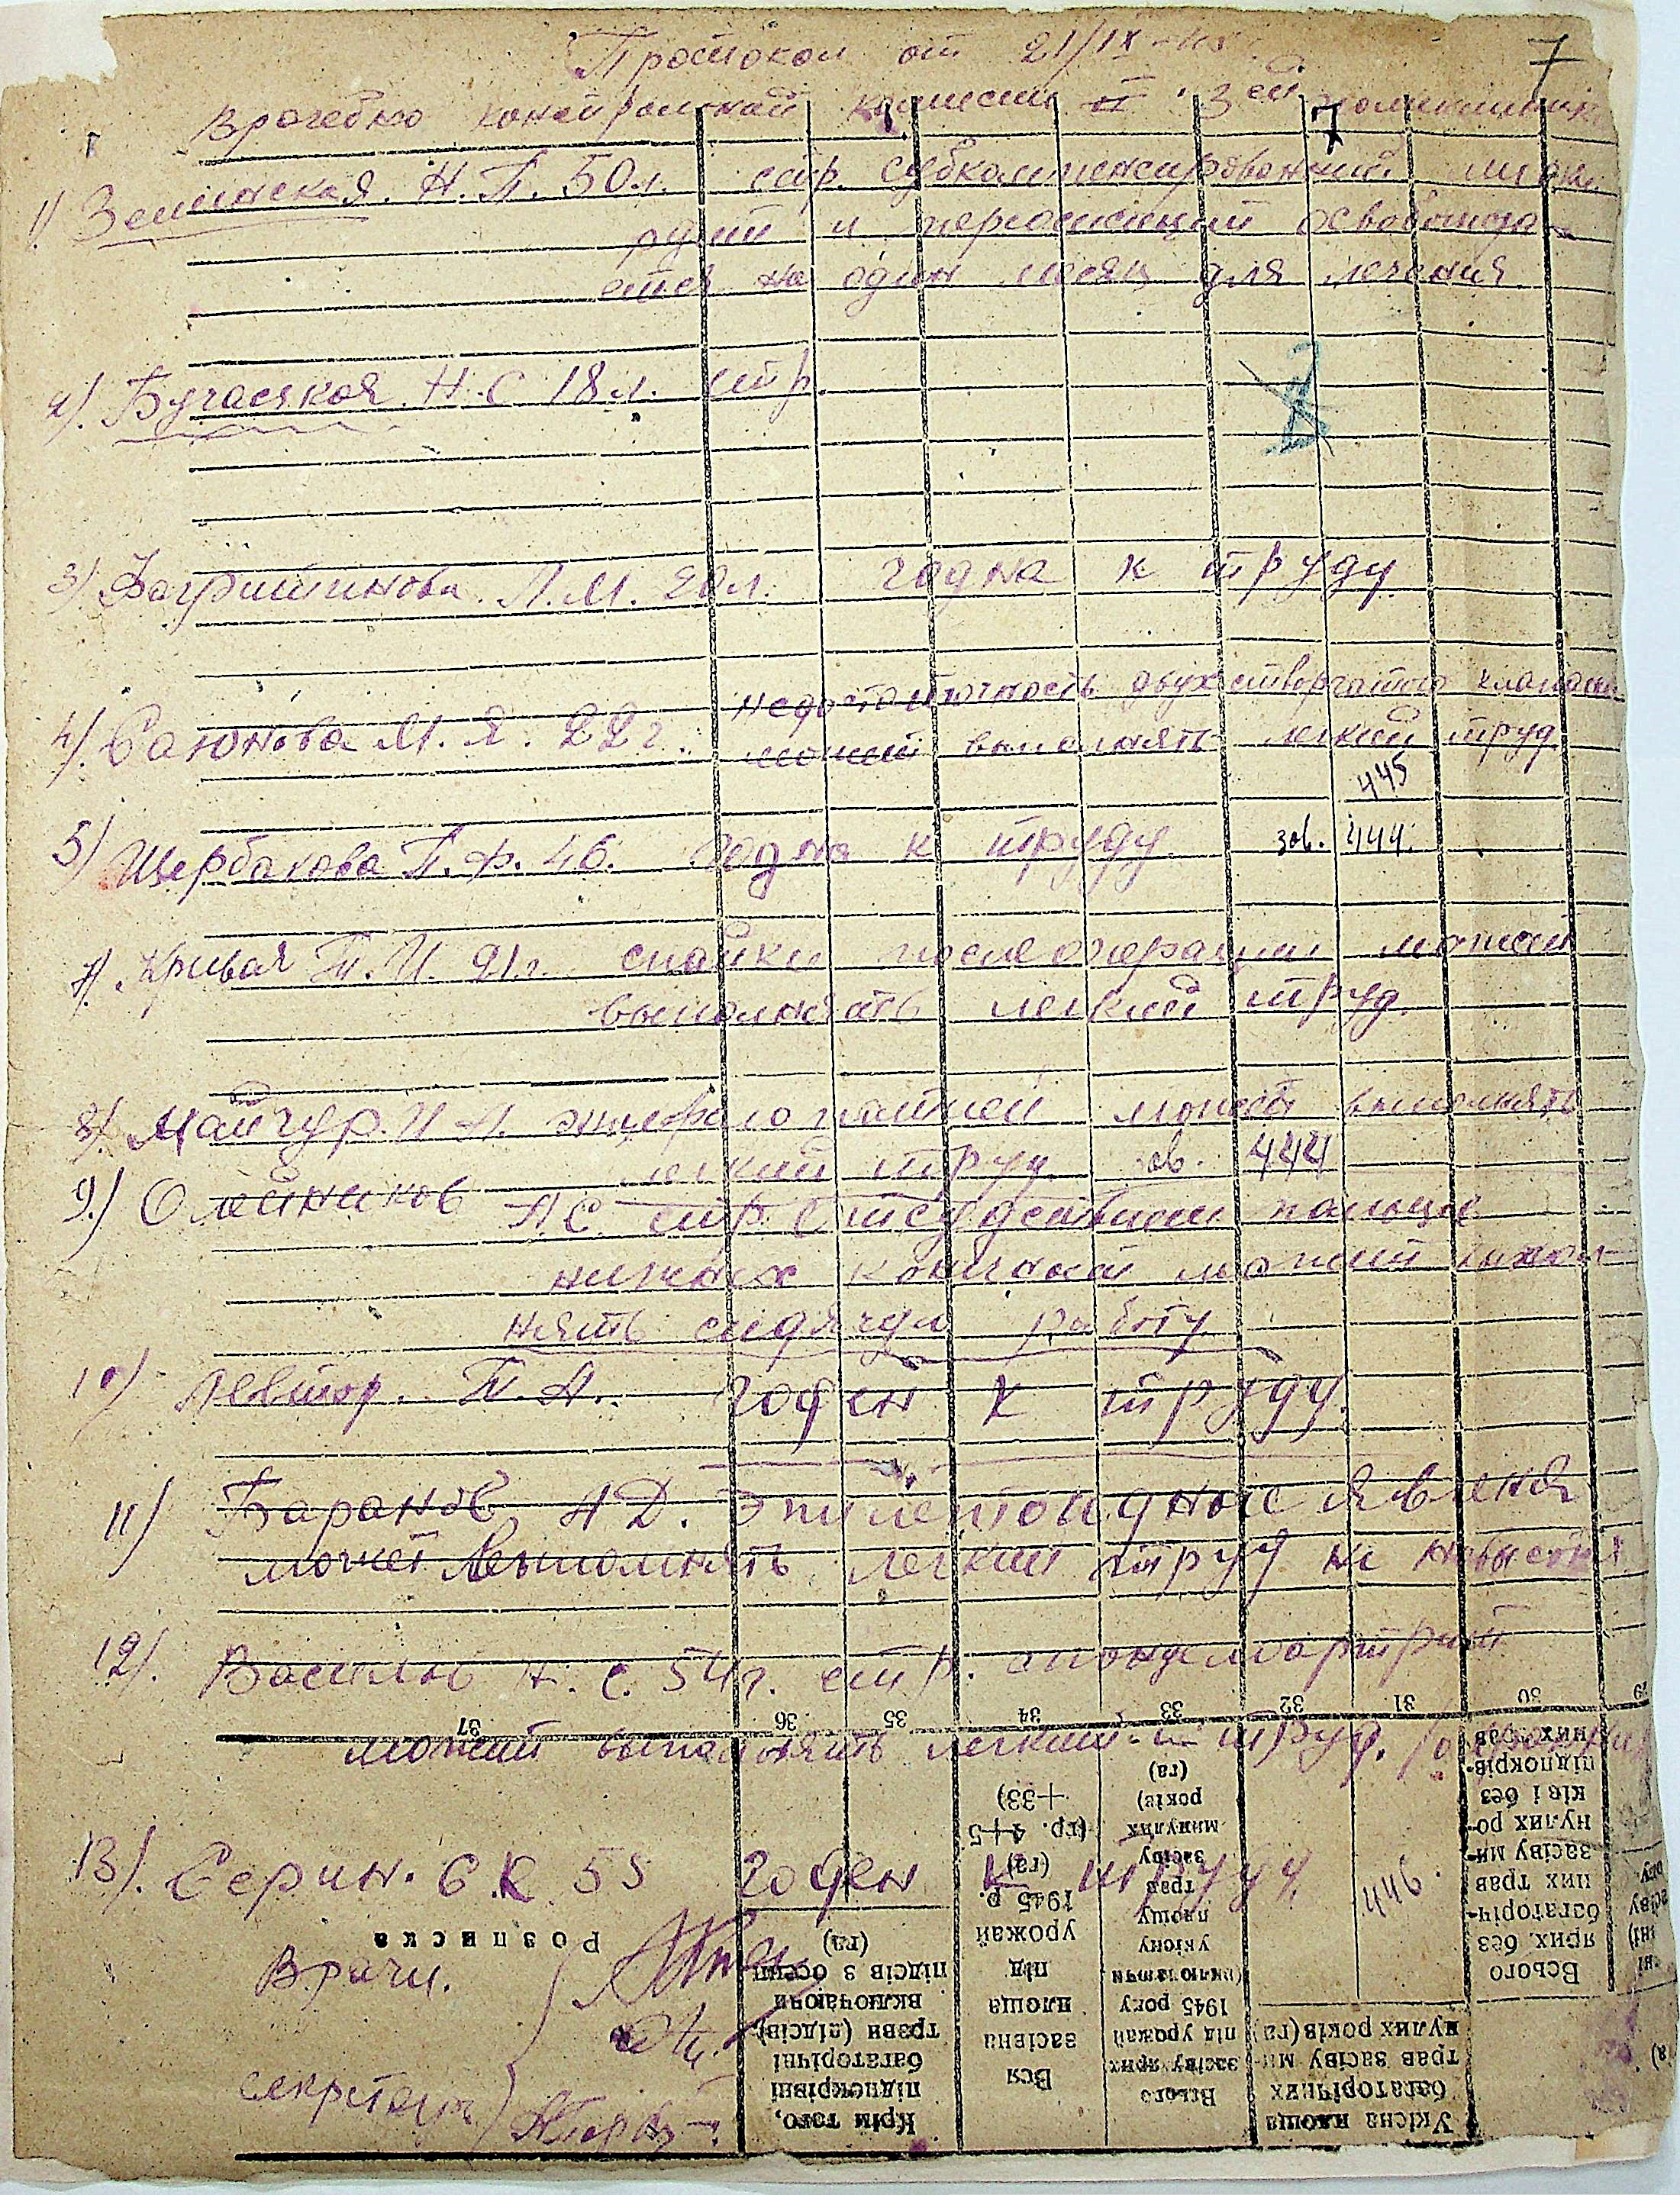 Протокол от 21/IX-45
7
Врачебно контрольной комиссии 3ей поликлиники
7
1) Земинская. Н. П. 50 л. стр. субкомпенсированный
и освобожда-
ется на один месяц для лечения.
2). Бучаская Н. С 18 л. стр.
3) Л. М. 20 л. годна к труду
недостаточность двухстворчатого клапана
4). Саюнова М. Я. 22 г. может выполнять легкий труд
445
5) Щербакова П. Ф. 46. годна к труду зав. 444.
7). Кривая П. И. 21 г. спайки после операции может
выполнять легкий труд.
8). Майчур. И А. может выполнять
легкий труд зав. 444
9.) Олейников А С стр. отсутствием пальцев
нижних конечност может выпол-
нять сидячую работу
10) Левтор. П. А. годен к труду.
11) Баранов А Д. Эпилептоидные явленя
может выполнять легкий труд не
12). Василью Н. С. 54 г. стр. спондилоартрит
37 36 35 34 33 32 31 30 29
может выполнять легкий труд.
13). Серин. С. К. 55 годен к труду. 446.
Розписка
Врачи.
секретарь
Крім того, підпокрівні багаторічні трави (підсів), включаючи підсів з осени (га)
Вся засівна площа під урожай 1945 р. (га) (гр. 4+5 +33)
Всього засіву ярих під урожай 1945 року (включаючи укісну площу трав засіву минулих років) (га)
Укісна площа багаторічних трав засіву минулих років (га)
Всього ярих, без багаторічних трав засіву минулих років і без підпокрівних трав